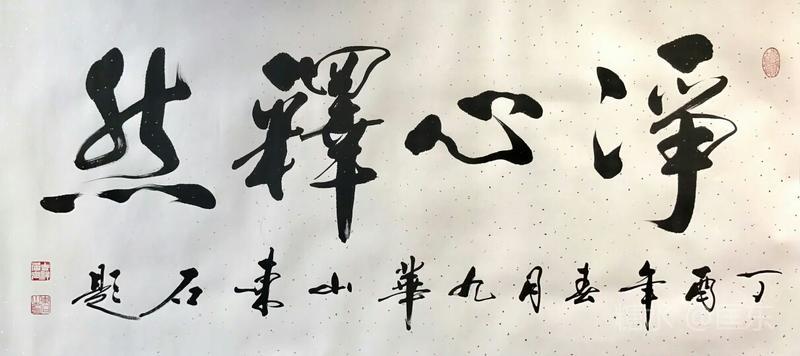 淨心釋然
丁酉年春月九華山東石題